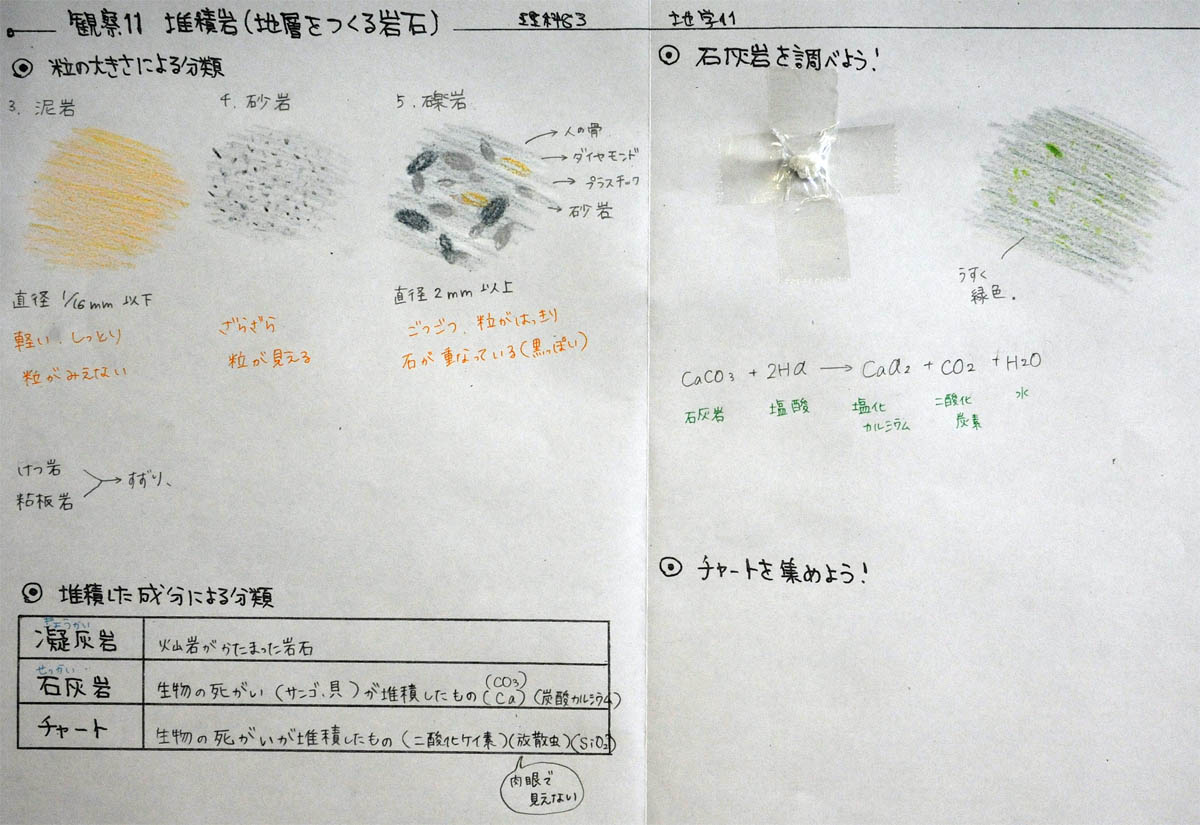 観察11 堆積岩(地層をつくる岩石)
理科G3
地学11
粒の大きさによる分類
3. 泥岩
4. 砂岩
5. 礫岩
人の骨
ダイヤモンド
プラスチック
砂岩
直径 1/16mm 以下
軽い、しっとり
粒がみえない
ざらざら
粒が見える
直径2mm以上
ごつごつ、粒がはっきり
石が重なっている(黒っぽい)
けつ岩
粘板岩
すずり、
堆積した成分による分類
ぎょうかい
凝灰岩
火山岩がかたまった岩石
せっかい
石灰岩
生物の死がい(サンゴ、貝)が堆積したもの(CO3)(Ca)(炭酸カルシウム)
チャート
生物の死がいが堆積したもの(二酸化ケイ素)(放散虫)(SiO2)
肉眼で
見えない
石灰岩を調べよう!
うすく
緑色.
CaCO3 + 2HCl → CaCl2 + CO2 + H2O
石灰岩 塩酸 塩化カルシウム 二酸化炭素 水
チャートを集めよう!